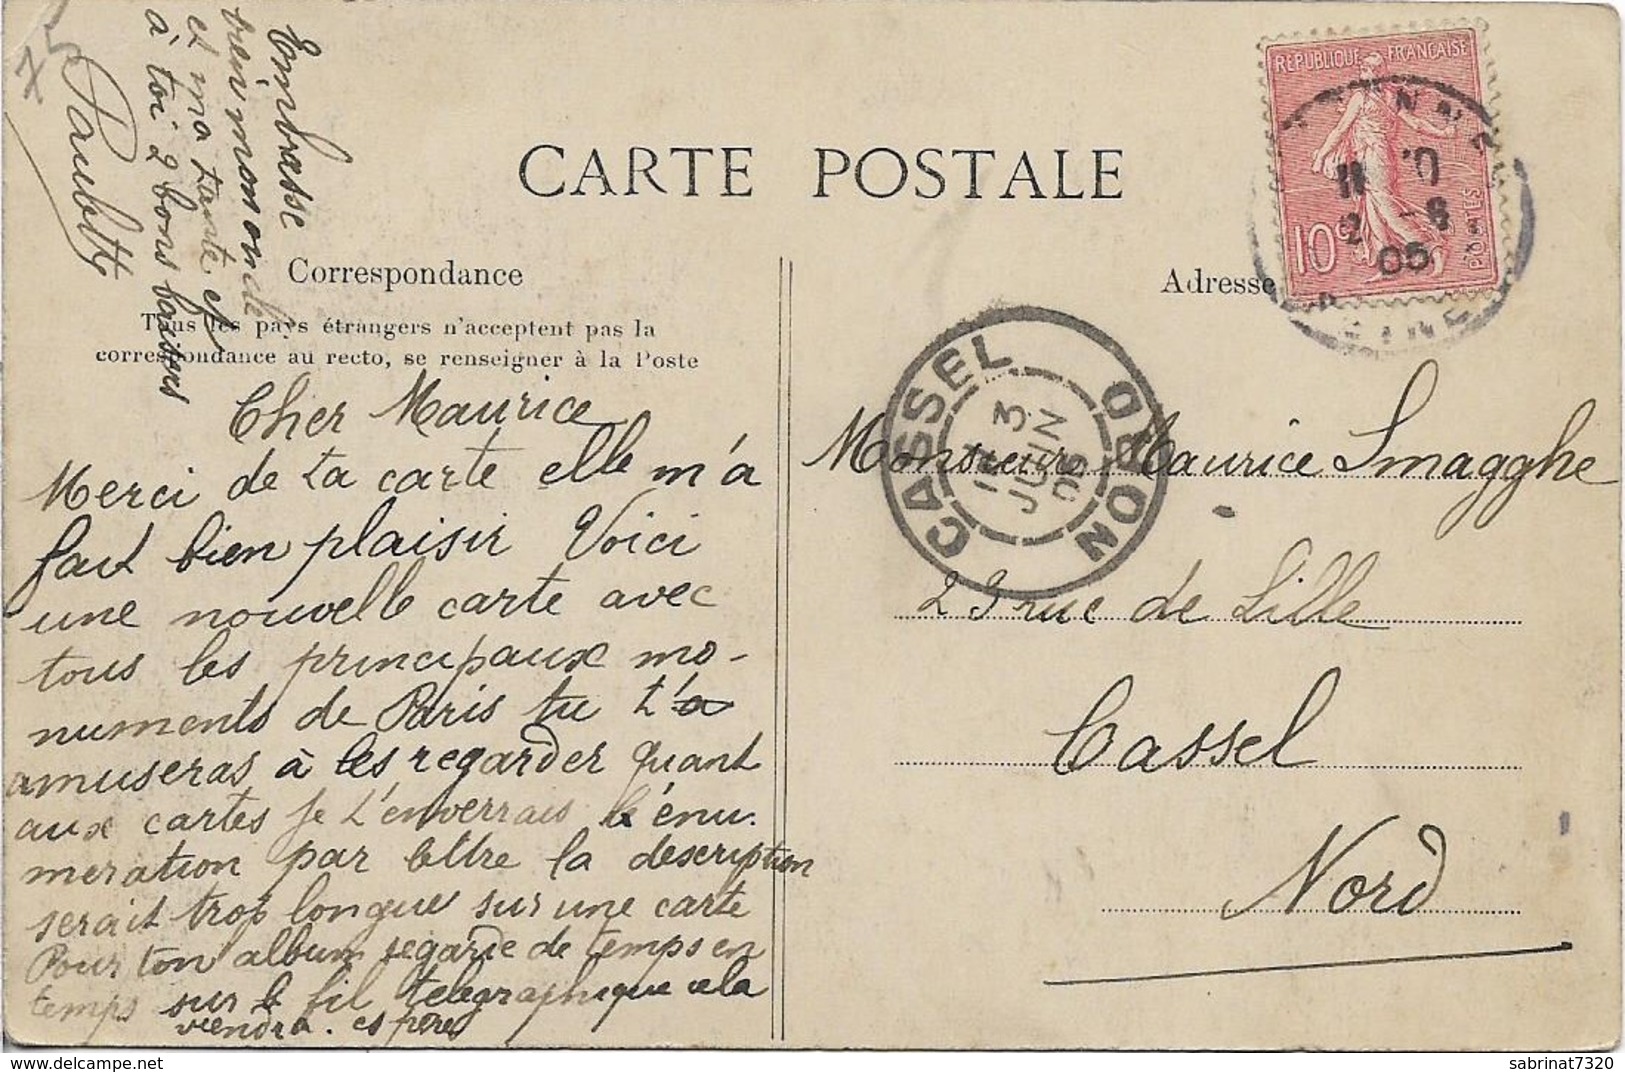 75
Embrasse
bien mon oncle
et ma tante et
à toi 2 bons baisers
Paulette
CARTE POSTALE
Correspondance
Tous les pays étrangers n'acceptent pas la
correspondance au recto, se renseigner à la Poste
Cher Maurice
Merci de ta carte elle m'a
fait bien plaisir Voici
une nouvelle carte avec
tous les principaux mo-
numents de Paris tu t'a
amuseras à les regarder Quant
aux cartes je t'enverrais l'énu.
meration par lettre la description
serait trop longue sur une carte
Pour ton album regarde de temps en
temps sur le fil télégraphique cela
viendra. espères
Adresse
REPUBLIQUE FRANÇAISE
POSTES
10c
11
2 -6
05
CASSEL
NORD
3
JUIN
05
Monsieur Maurice Smagghe
23 rue de Lille
Cassel
Nord
sabrinat7320